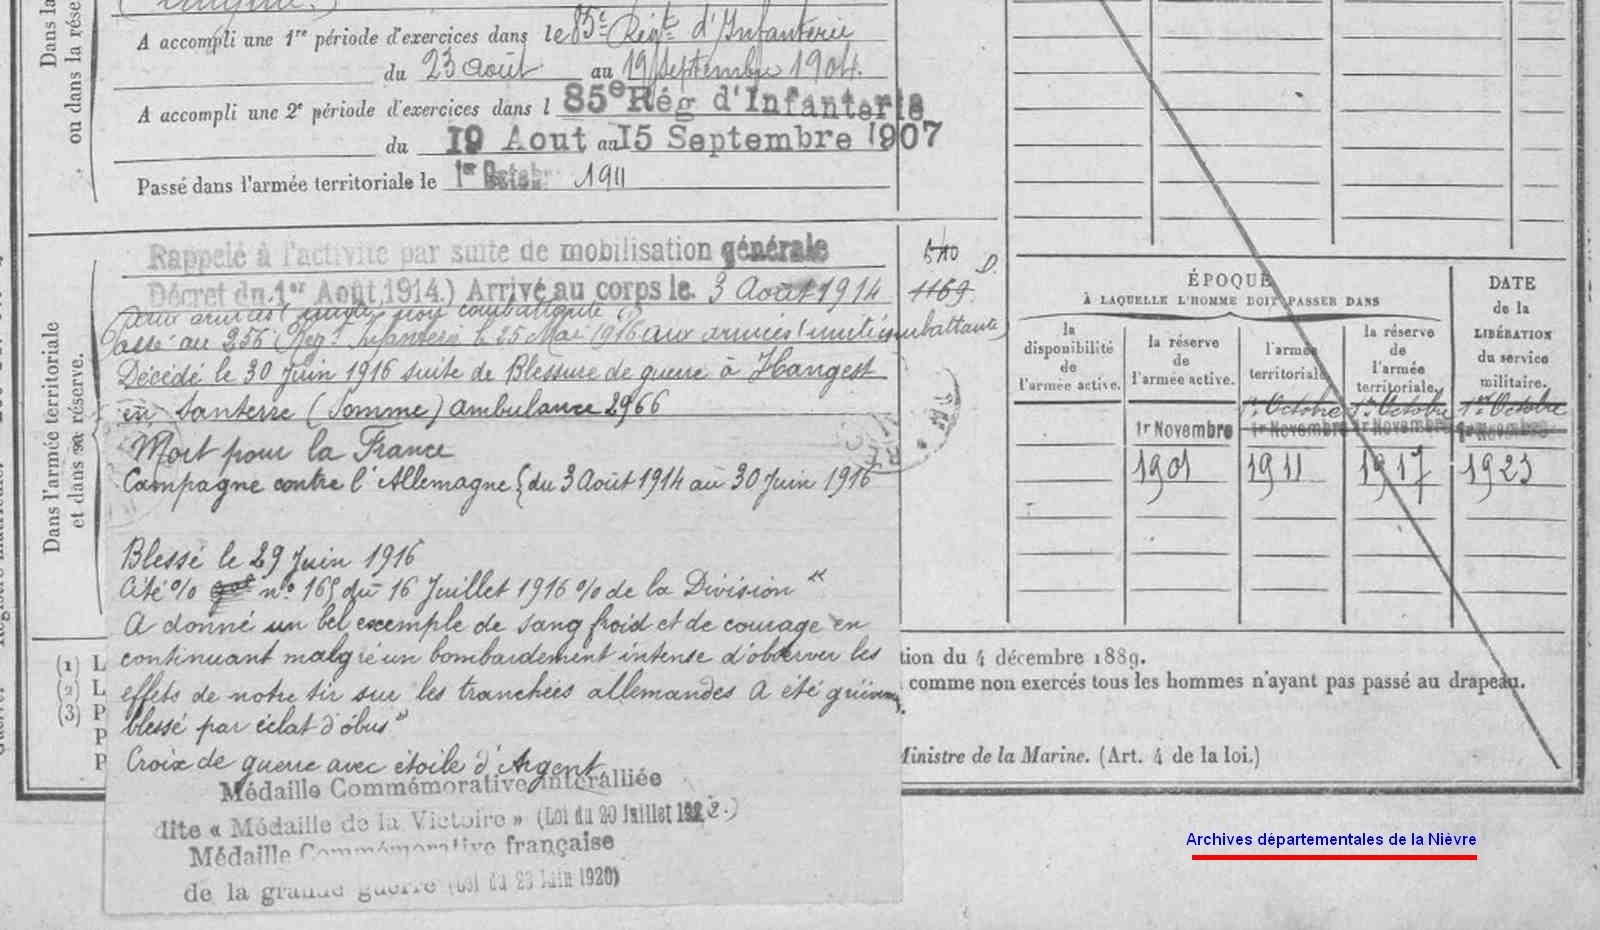 Dans la
ou dans la rése
A accompli une 1re période d'exercices dans le 85e Régt d'Infanterie
du 23 août au 19 septembre 1904.
A accompli une 2e période d'exercices dans l 85e Rég d'Infanterie
du 19 Aout au 15 Septembre 1907
Passé dans l'armée territoriale le 1er Octobr 1911
Dans l'armée territoriale
et dans sa réserve.
Rappelé à l'activité par suite de mobilisation générale
Décret du 1er Août 1914.) Arrivé au corps le 3 Août 1914
aux armées (unité non combattante
Passé au 256 Regt Infanterie le 25 Mai 1916 aux armées (unité combattante)
Décédé le 30 Juin 1916 suite de Blessure de guerre à Hangest
en Santerre (Somme) ambulance 2966
Mort pour la France
Campagne contre l'Allemagne { du 3 Août 1914 au 30 Juin 1916
Blessé le 29 Juin 1916
Cité % n° 165 du 16 Juillet 1916 % de la Division "
A donné un bel exemple de sang froid et de courage en
continuant malgré un bombardement intense d'observer les
effets de notre tir sur les tranchées allemandes A été grièvem.
blessé par éclat d'obus"
Croix de guerre avec étoile d'Argent
Médaille Commémorative interalliée
dite « Médaille de la Victoire » (Loi du 20 Juillet 1922.)
Médaille Commémorative française
de la grande guerre (Loi du 23 Juin 1920)
1169
D.
ÉPOQUE
À LAQUELLE L'HOMME DOIT PASSER DANS
DATE
de la
LIBÉRATION
du service
militaire.
la
disponibilité
de
l'armée active.
la réserve
de
l'armée active.
l'armée
territoriale.
la réserve
de
l'armée
territoriale.
1er Octobre 1er Octobre 1er Octobre
1er Novembre 1er Novembre 1er Novembre 1er Novembre
1901 1911 1917 1923
(1) L
(2) L
(3) P
P
P
tion du 4 décembre 1889.
comme non exercés tous les hommes n'ayant pas passé au drapeau.
Ministre de la Marine. (Art. 4 de la loi.)
Archives départementales de la Nièvre